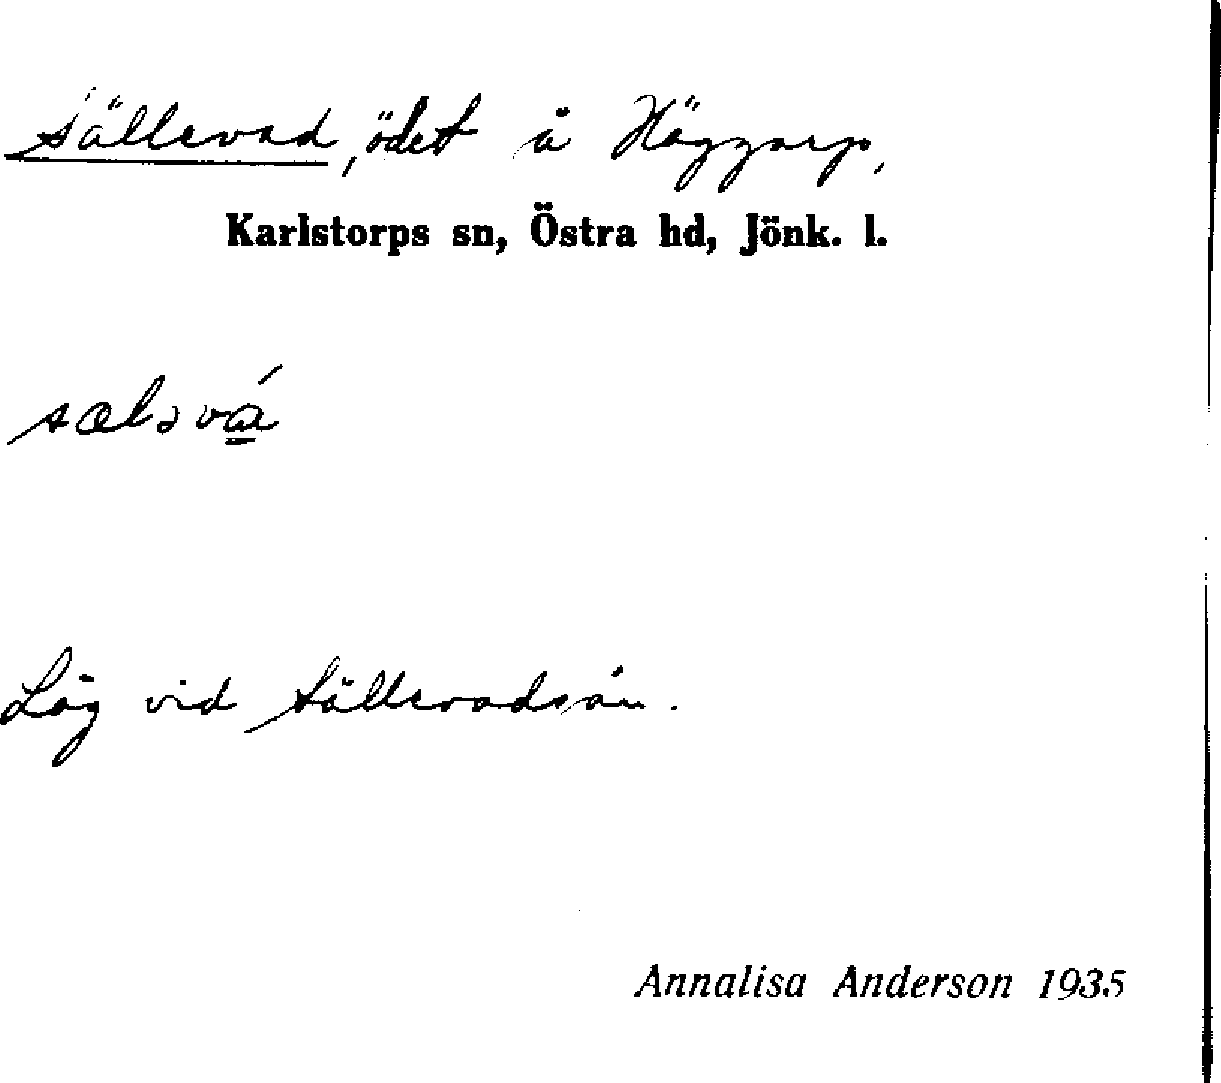 Sällevad, ödet å Häggarp,
Karlstorps sn, Östra hd, Jönk. l.
sæləvá
Låg vid Sällevadsån.
Annalisa Anderson 1935